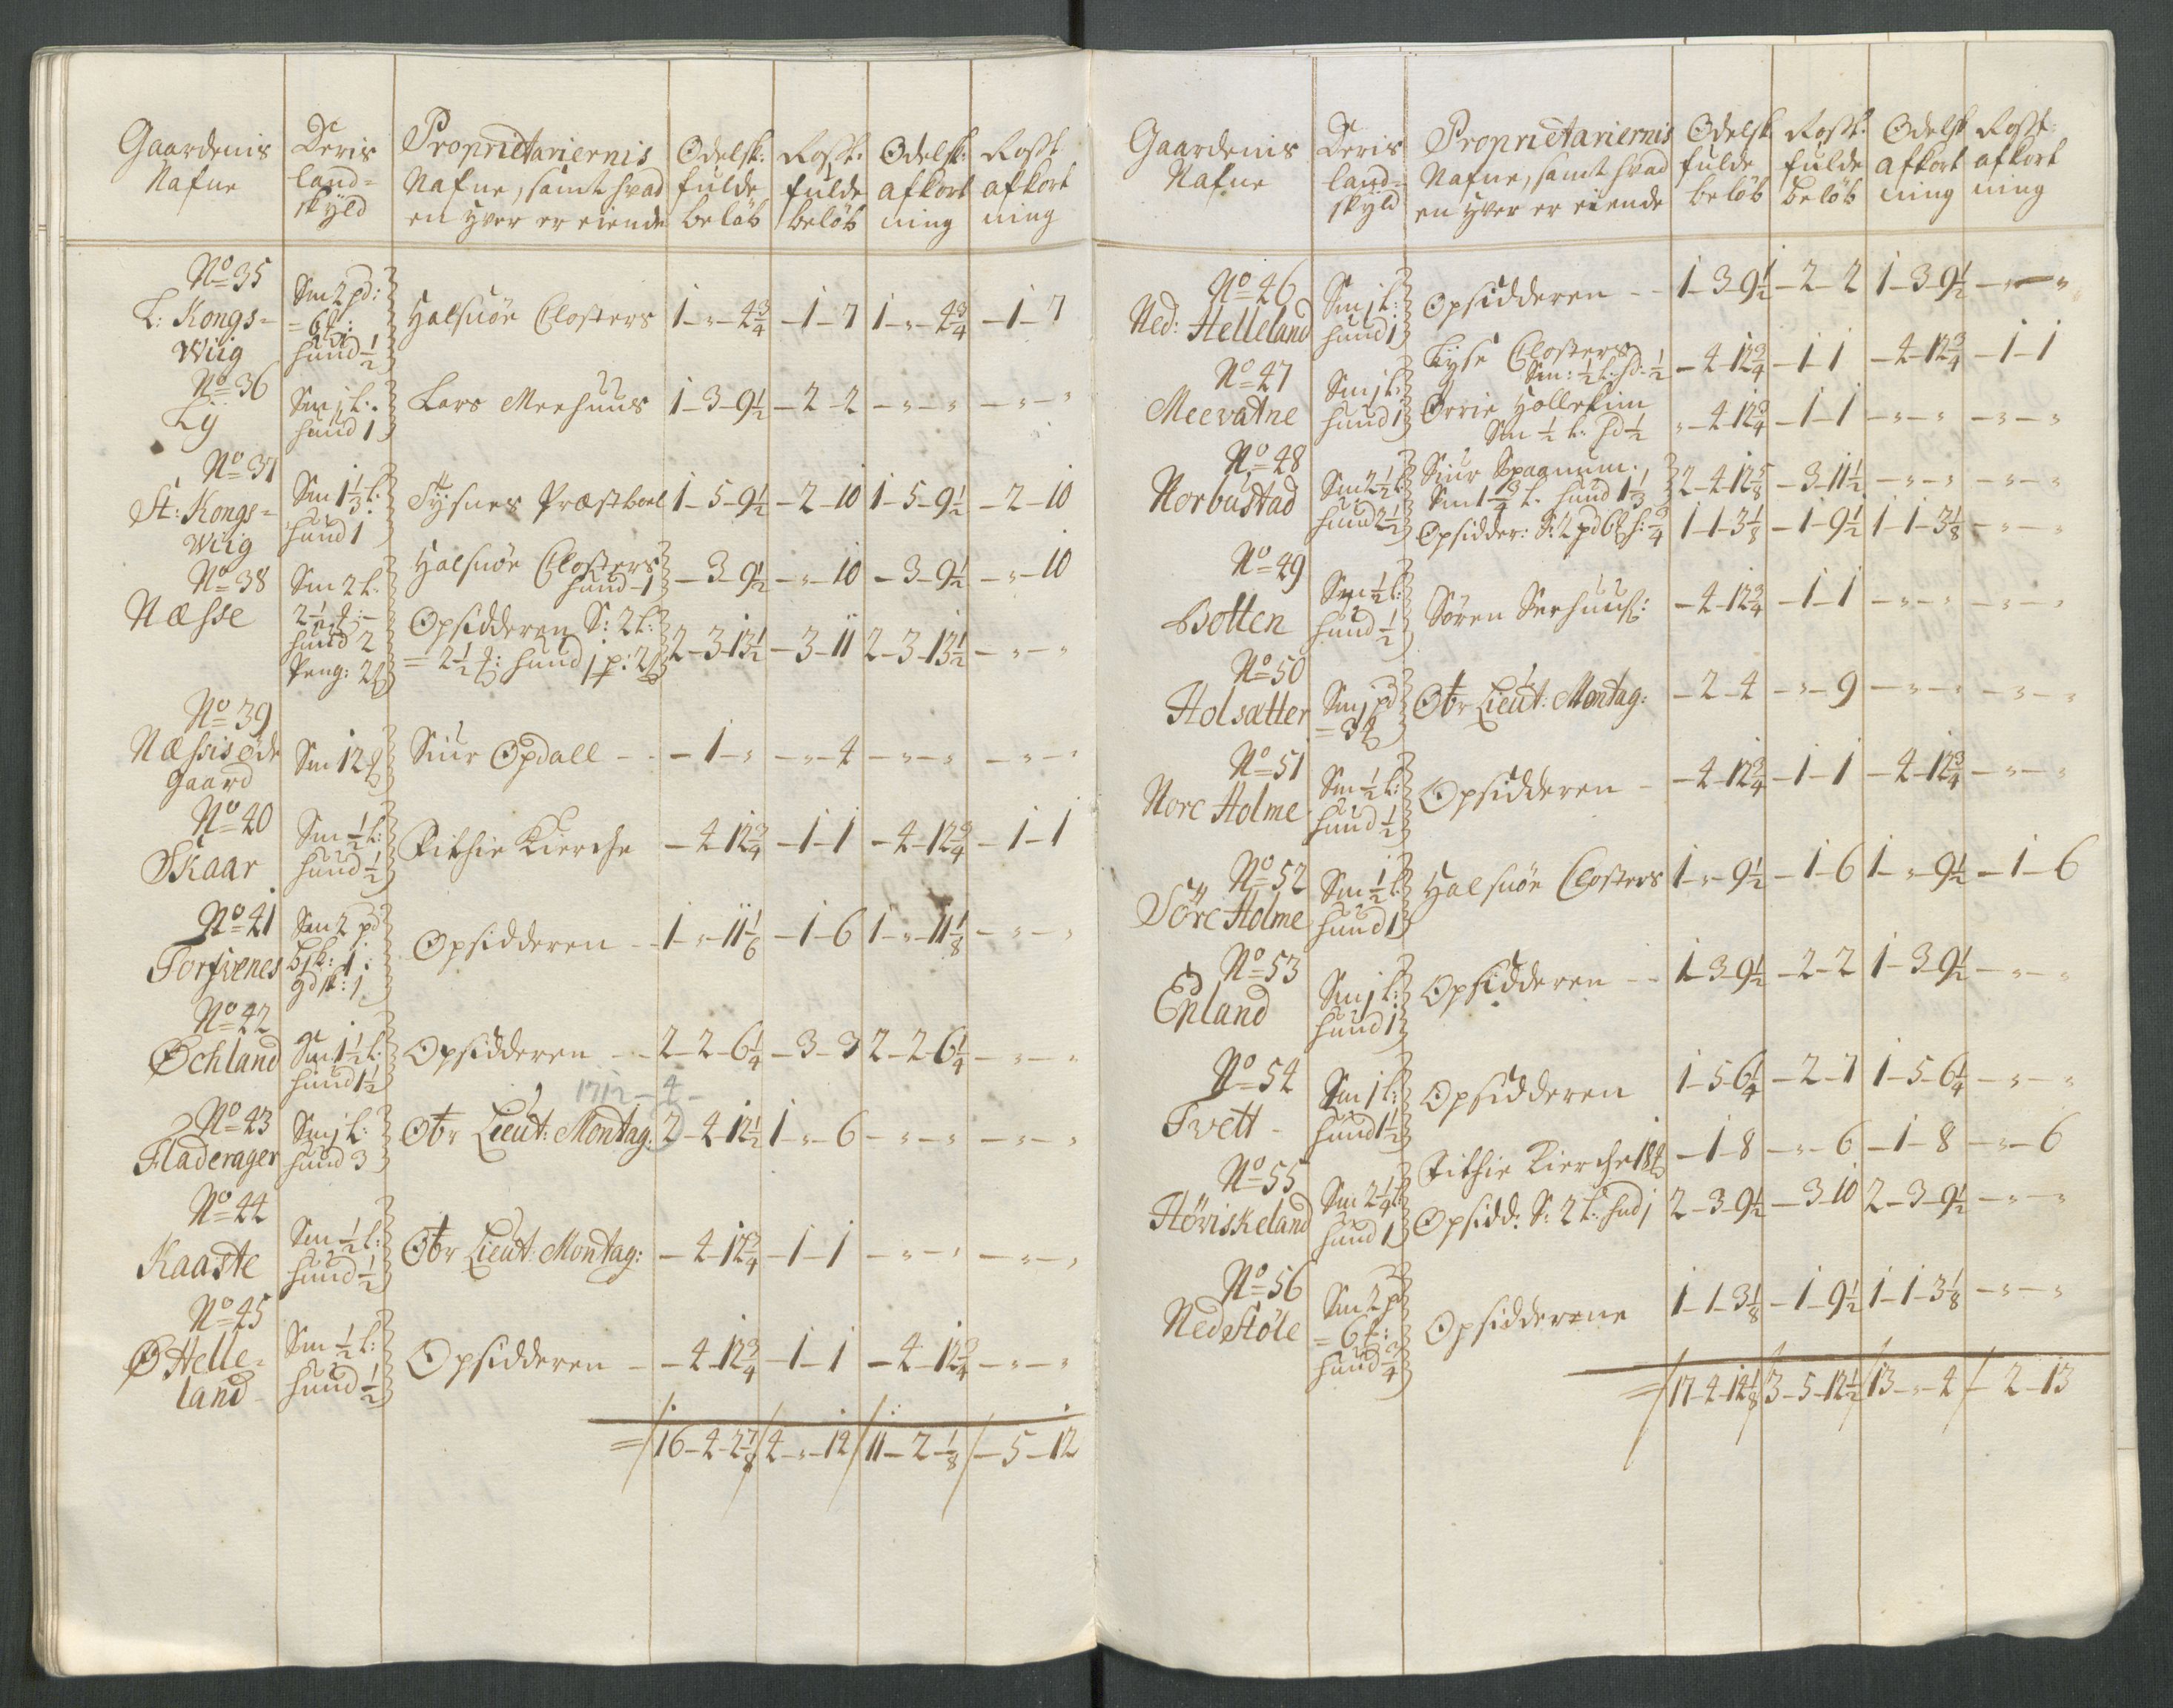 Gaardenis Nafne
Deris land= skyld
Proprietariernis Nafne, samt hvad en hver er eiende
Odelsk: fulde beløb
Rosst: fulde beløb
Odelsk: afkort ning
Rosst afkort ning
No 35
L: Kongs= Wiig
Sm 2 pd: = 6 : hund ½
Halsnøe Closters 1 - " - 4¾ - 1 - 7 1 - " - 4¾ - 1 - 7
No 36
Ly
Sm j L: hund 1
Lars Meehuus 1 - 3 - 9½ - 2 - 2 - " - " - " - "
No 37
St: Kongs= Wiig
Sm 1⅓ L: hund 1
Tysnes Præstboel 1 - 5 - 9½ - 2 - 10 1 - 5 - 9½ - 2 - 10
No 38
Næsse
Sm 2 L: 2½ : hund 2 Peng: 2
Halsnøe Closters hund - 1 - 3 - 9½ - " - 10 - 3 - 9½ - " - 10
Opsidderen S: 2 L: = 2½ : hund j p: 2 2 - 3 - 13½ - 3 - 11 2 - 3 - 13½ - " - "
No 39
Næssis øde gaard
Sm 12
Siur Opdall - 1 - " - " - 4 - " - " - " - "
No 40
Skaar
Sm ½ L: hund ½
Fithie Kierche - 4 - 12¾ - 1 - 1 - 4 - 12¾ - 1 - 1
No 41
Torsvenes
Sm 2 pd bsk: 1: gdsk: 1
Opsidderen 1 - " - 11⅙ - 1 - 6 1 - " - 11⅛ - " - "
No 42
Øchland
Sm 1½ L: hund 1½
Opsidderen 2 - 2 - 6¼ - 3 - 3 2 - 2 - 6¼ - " - "
1712 - 4 -
No 43
Fladerager
Sm j L: hund 3
Obr Lieut: Montag: 2 - 4 - 12½ 1 - " - 6 - " - " - " - "
No 44
Kaaste
Sm ½ L: hund ½
Obr Lieut: Montag: - 4 - 12¾ - 1 - 1 - " - " - " - "
No 45
Ø Helle= land
Sm ½ L: hund ½
Opsidderen - 4 - 12¾ - 1 - 1 - 4 - 12¾ - " - "
= / 16 - 4 - 2⅞ / 4 - " - 14 / 11 - 2 - ⅛ / - 5 - 12
Gaardenis Nafne
Deris land= skyld
Proprietariernis Nafne, samt hvad en hver er eiende
Odelsk fulde beløb
Rosst: fulde beløb
Odelsk afkort ning
Rosst: afkort ning
No 46
Ned: Helleland
Sm j L: hund 1
Opsidderen 1 - 3 - 9½ - 2 - 2 1 - 3 - 9½ - " - "
No 47
Meevatne
Sm j L: hund 1
Lyse Closters Sm: ½ L: hd - ½ - 4 - 12¾ - 1 - 1 - 4 - 12¾ - 1 - 1
Sm ½ L: hd ½ " - 4 - 12¾ - 1 - 1 - " - " - " - "
No 48
Norbustad
Sm 2½ L: hund 2½
Siur Spagnum. Sm 1¾ L. hund 1⅓ 2 - 4 - 12⅝ - 3 - 11½ - " - " - " - "
Opsidder: S: 2 pd 6 h: ¾ 1 - 1 - 3⅛ - 1 - 9½ 1 - 1 - 3⅛ - " - "
No 49
Botten
Sm ½ L: hund ½
Søren Seehuus: - 4 - 12¾ - 1 - 1 - " - " - " - "
No 50
Holsætter
Sm j pd = 3
Obr Lieut: Montag: - 2 - 4 - " - 9 - " - " - " - "
No 51
Nore Holme
Sm ½ L: hund ½
Opsidderen - 4 - 12¾ - 1 - 1 - 4 - 12¾ - " - "
No 52
Söre Holme
Sm ½ L: hund 1
Halsnøe Closters 1 - " - 9½ - 1 - 6 1 - " - 9½ - 1 - 6
No 53
Epland
Sm j L: hund 1
Opsidderen 1 - 3 - 9½ - 2 - 2 1 - 3 - 9½ - " - "
No 54
Tvett
Sm 1 L: hund 1½
Opsidderen 1 - 5 - 6¼ - 2 - 7 1 - 5 - 6¼ - " - "
No 55
Höviskeland
Sm 2¼ L: hund 1
Fithie Kierche 18 - 1 - 8 - " - 6 - 1 - 8 - " - 6
Opsidd: S: 2 L: hnd j 2 - 3 - 9½ - 3 - 10 2 - 3 - 9½ - " - "
No 56
Nedstöle
Sm 2 pd = 6 : hund ¾
Opsidderene 1 - 1 - 3⅛ - 1 - 9½ 1 - 1 - 3⅛ - " - "
= / 17 - 4 - 14⅛ / 3 - 5 - 12½ / 13 - " - 4 / - 2 - 13